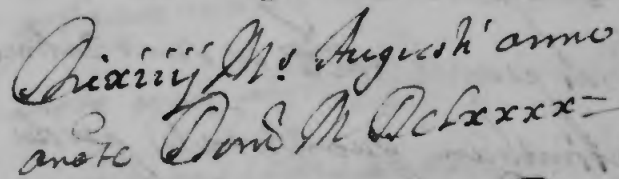 Die xiiij Ms Augusti anno
anate Domi M DCLxxxx=